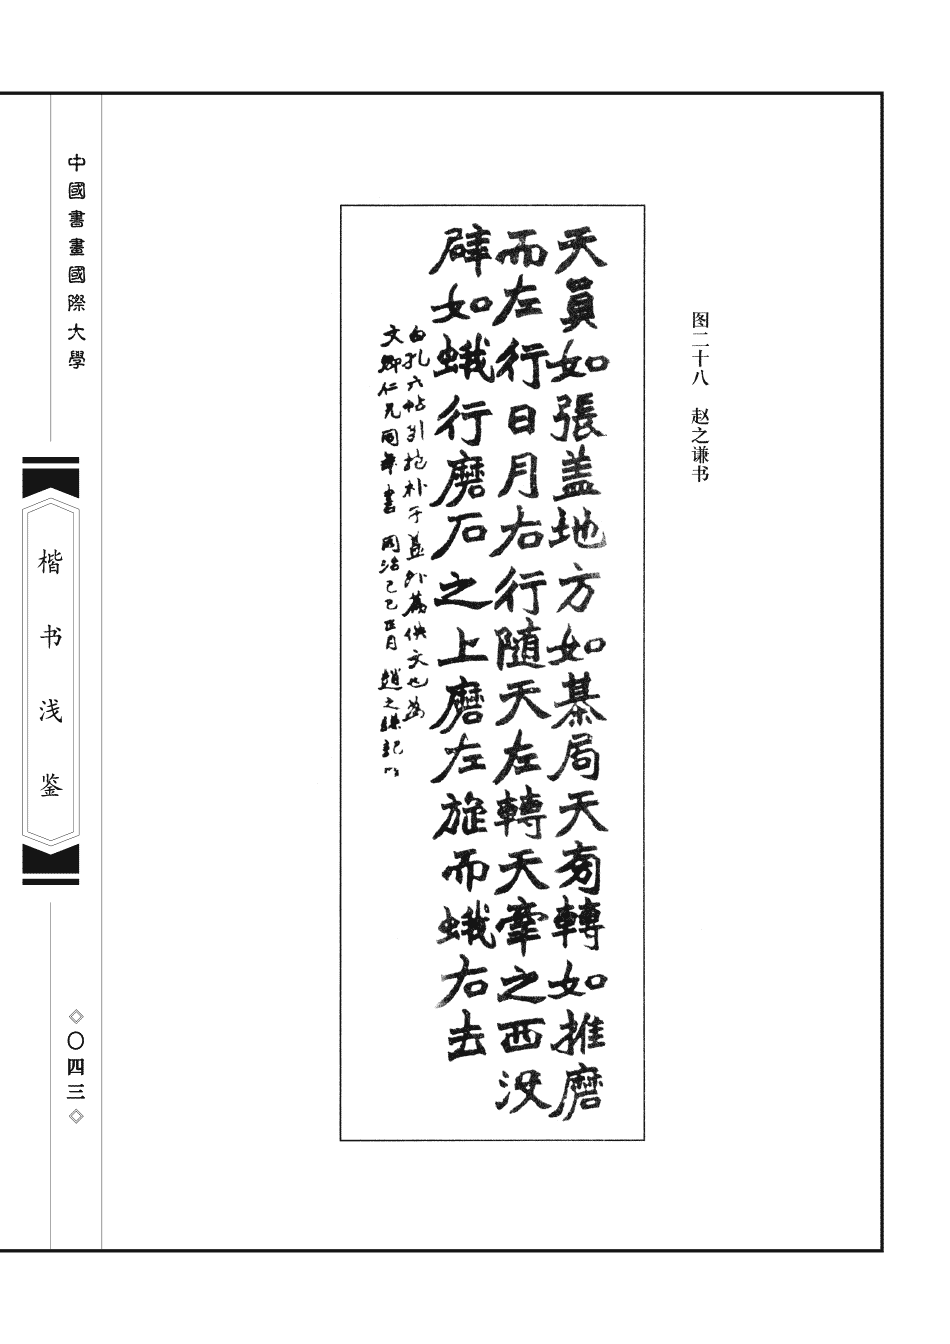 图二十八 赵之谦书
天員如張盖地方如棊局天旁轉如推磨
而左行日月右行随天左轉天牽之西没
辟如蛾行磨石之上磨左旋而蛾右去
白孔六帖引抱朴子葢外篇佚文也為
文卿仁兄同年書 同治己巳正月 趙之謙記
中國書畫國際大學
楷书浅鉴
〇四三